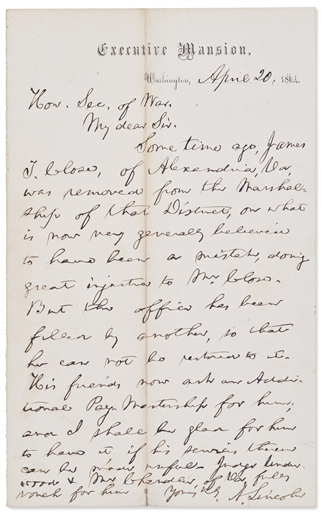 Executive Mansion,
Washington, April 20, 1864.
Hon. Sec. of War.
My dear Sir.
Some time ago, James
T. Close, of Alexandria, Va,
was removed from the Marshal-
ship of that District, on what
is now very generally believed
to have been a mistake, doing
great injustice to Mr. Close.
But the office has been
filled by another, so that
he can not be restored to it.
His friends now ask an Addi-
tional Pay-Mastership for him,
and I shall be glad for him
to have it if his services there
can be made useful. Judge Under-
wood & Mr Chandler, of
vouch for him Yours truly A. Lincoln